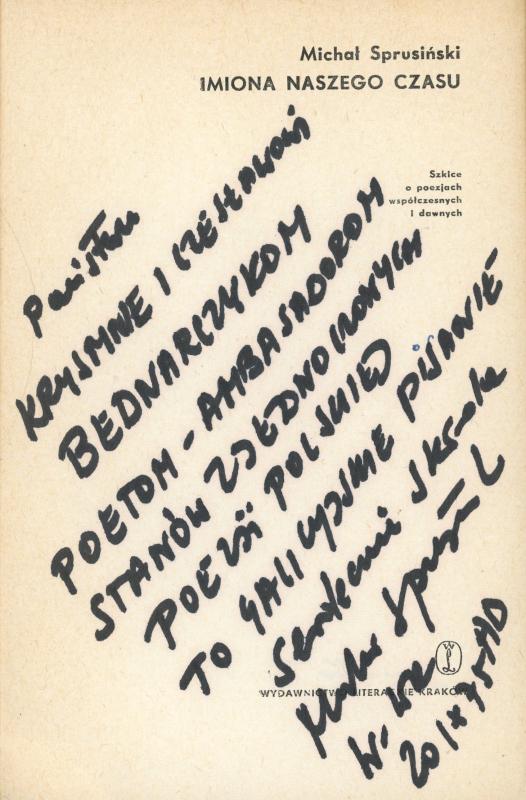 Michał Sprusiński
IMIONA NASZEGO CZASU
Szkice
o poezjach
współczesnych
i dawnych
Państwu
KRYSTYNIE I CZESŁAWOM
BEDNARCZYKOM
POETOM – AMBASADOROM
STANÓW ZJEDNOCZONYCH
POEZJI POLSKIEJ
TO GALICYJSKIE PISANIE –
Serdecznie
Michał Sprusiński
W-wa
20 IX 75 AD
W L
WYDAWNICTWO LITERACKIE KRAKÓW